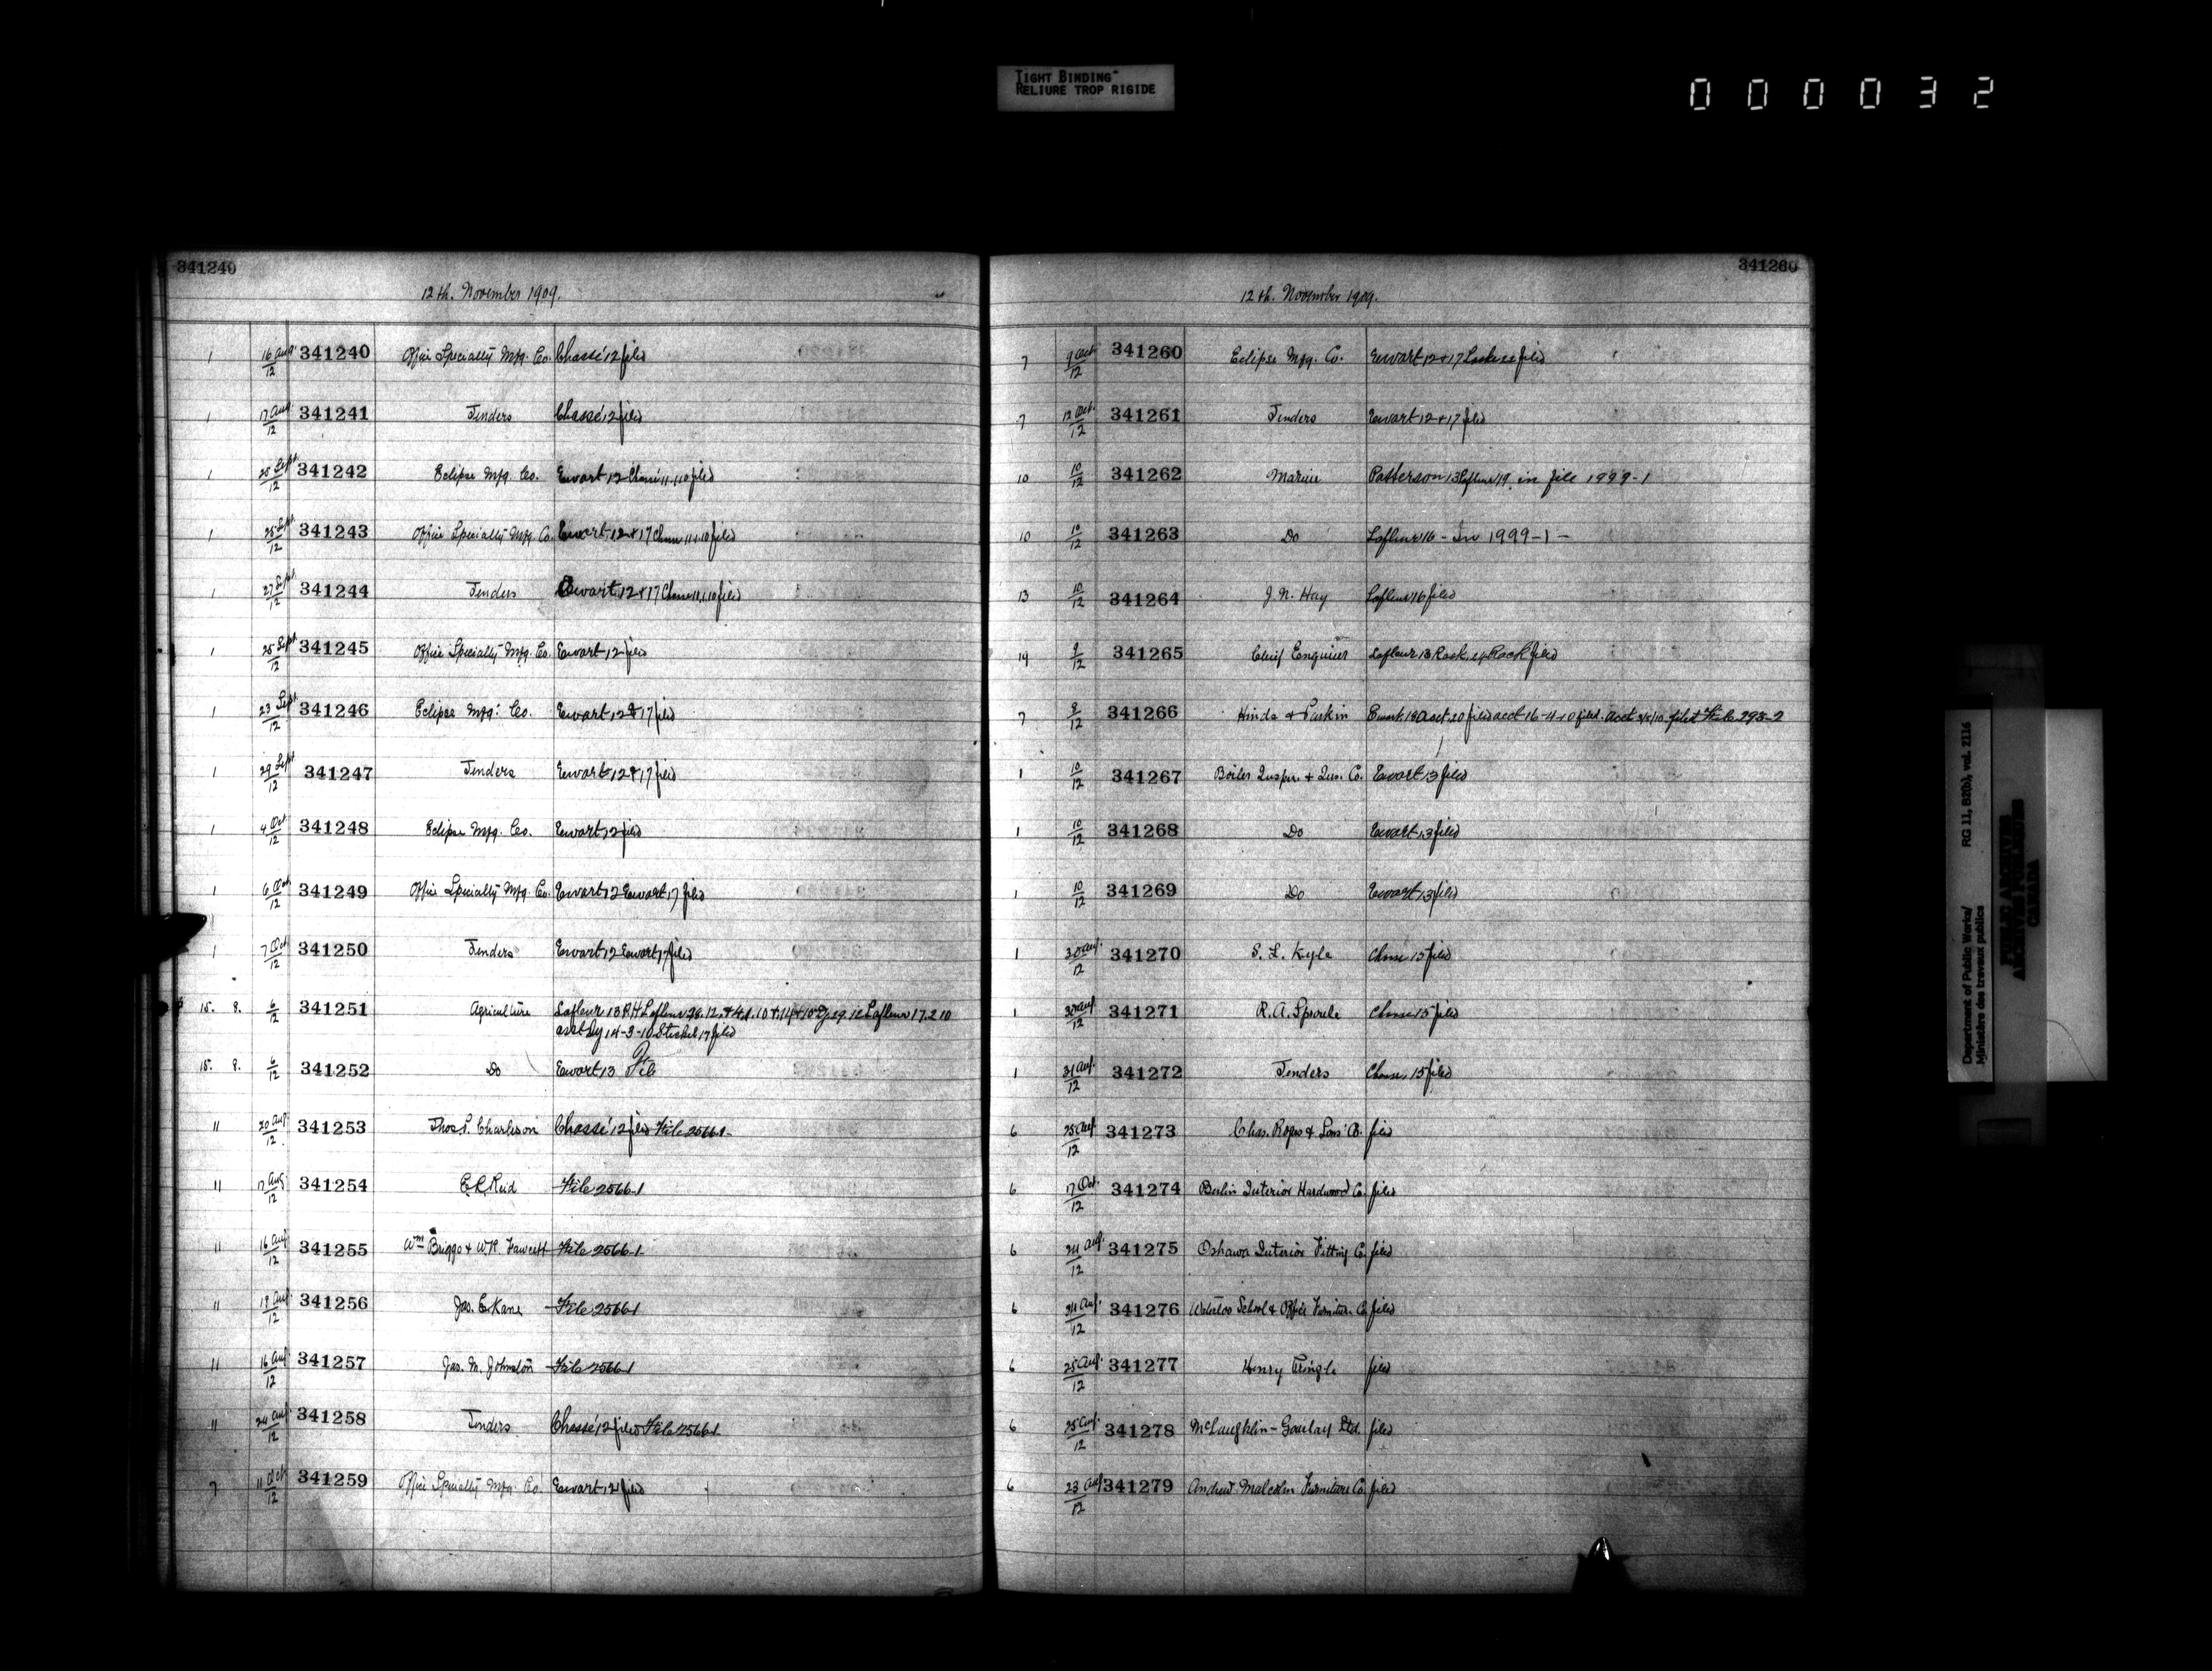 TIGHT BINDING
RELIURE TROP RIGIDE
000032
341240
12th. November 1909.
1 16 Aug. 12 341240 Office Specialty Mfg. Co. Chassé 12 filed
1 17 Aug. 12 341241 Tenders Chassé 12 filed
1 25 Sept 12 341242 Eclipse Mfg. Co. Ewart 12 Chassé 11.1.10 filed
1 25 Sept. 12 341243 Office Specialty Mfg. Co. Ewart 12 & 17 Chasse 11.1.10 filed
1 27 Sept 12 341244 Tenders Ewart 12 & 17 Chasse 11.1.10 filed
1 25 Sept. 12 341245 Office Specialty Mfg. Co. Ewart 12 filed
1 23 Sept. 12 341246 Eclipse Mfg. Co. Ewart 12 & 17 filed
1 29 Sept 12 341247 Tenders Ewart 12 & 17 filed
1 4 Oct 12 341248 Eclipse Mfg. Co. Ewart 12 filed
1 6 Oct 12 341249 Office Specialty Mfg. Co. Ewart 12 Ewart 17 filed
1 7 Oct 12 341250 Tenders Ewart 12 Ewart 17 filed
15. 8. 6/12 341251 Agriculture Lafleur 13 R.H. Lafleur Lafleur 17.2.10
14-3-10 filed
15. 8. 6/12 341252 Do Ewart 13 File
11 20 Aug. 12 341253 Thos. S. Charleson Chassé 12 filed File 2566-1
11 17 Aug 12 341254 E.C. Reid File 2566-1
11 16 Aug 12 341255 Wm Briggs & W.R. Fawcett File 2566-1
11 18 Aug. 12 341256 Jas. E. Kane File 2566-1
11 16 Aug 12 341257 Jas. M. Johnston File 2566-1
11 24 Aug. 12 341258 Tenders Chassé 12 filed File 2566-1
7 11 Oct 12 341259 Office Specialty Mfg. Co. Ewart 12 filed
341260
12th. November 1909.
7 9 Oct 12 341260 Eclipse Mfg. Co. Ewart 12 & 17 filed
7 12 Oct. 12 341261 Tenders Ewart 12 & 17 filed
10 10/12 341262 Marine Patterson 13 Lafleur 19 in file 1999-1
10 10/12 341263 Do Lafleur 16 - In 1999-1 -
13 10/12 341264 J. N. Hay Lafleur 16 filed
14 9/12 341265 Chief Engineer Lafleur 13 filed
7 8/12 341266 Hinds & Larkin Ewart 18 acct. 20 filed acct 16-4-10 filed. acct filed File 293-2
1 10/12 341267 Boiler Inspn. & Ins. Co. Ewart 13 filed
1 10/12 341268 Do Ewart 13 filed
1 10/12 341269 Do Ewart 13 filed
1 30 Aug. 12 341270 S. L. Kyle Chasse 15 filed
1 30 Aug. 12 341271 R. A. Sproule Chasse 15 filed
1 31 Aug. 12 341272 Tenders Chasse 15 filed
6 25 Aug. 12 341273 Chas. Rogers & Sons Co. filed
6 17 Oct. 12 341274 Berlin Interior Hardwood Co. filed
6 24 Aug. 12 341275 Oshawa Interior Fitting Co. filed
6 24 Aug. 12 341276 Waterloo School & Office Furniture Co. filed
6 25 Aug. 12 341277 Henry Pringle filed
6 25 Aug. 12 341278 McLaughlin-Gourlay Ltd. filed
6 23 Aug 12 341279 Andrew Malcolm Furniture Co. filed
Department of Public Works/ RG 11, B2(b), vol. 2116
Ministère des travaux publics
PUBLIC ARCHIVES
ARCHIVES PUBLIQUES
CANADA